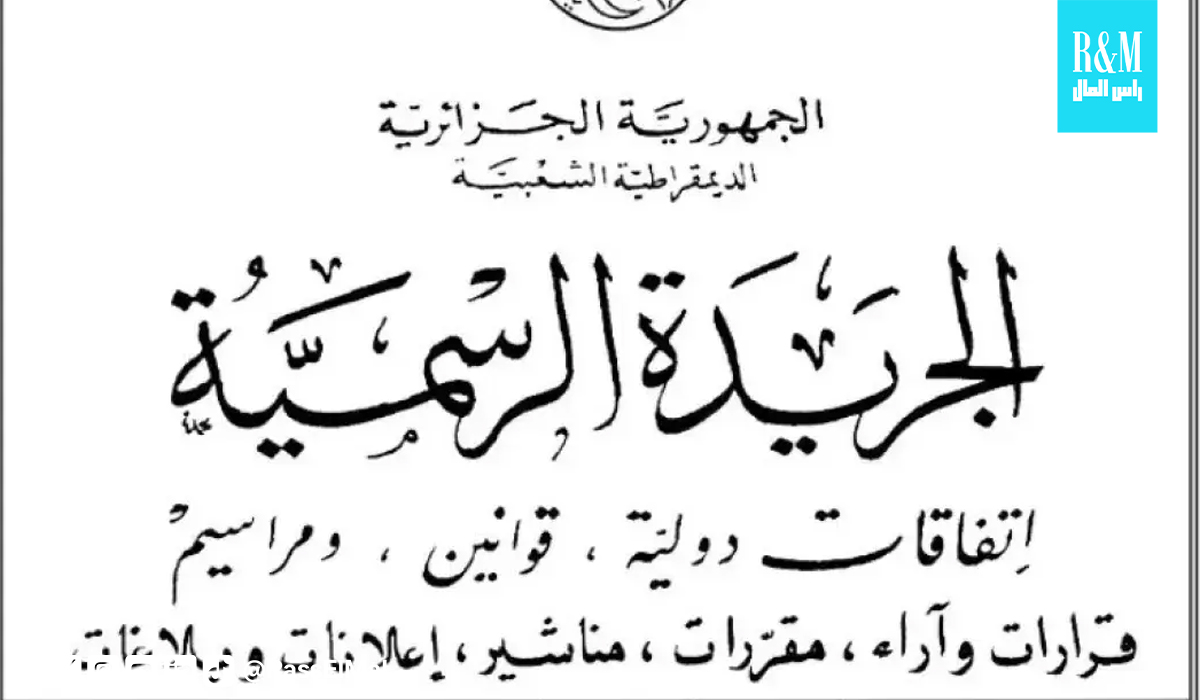 R&M
راس المال
الجمهوريّة الجزائريّة
الديمقراطيّة الشعبيّة
الجريدة الرسميّة
إتفاقات دوليّة ، قوانين ، ومراسيم
قرارات وآراء ، مقرّرات ، مناشير ، إعلانات وبلاغات